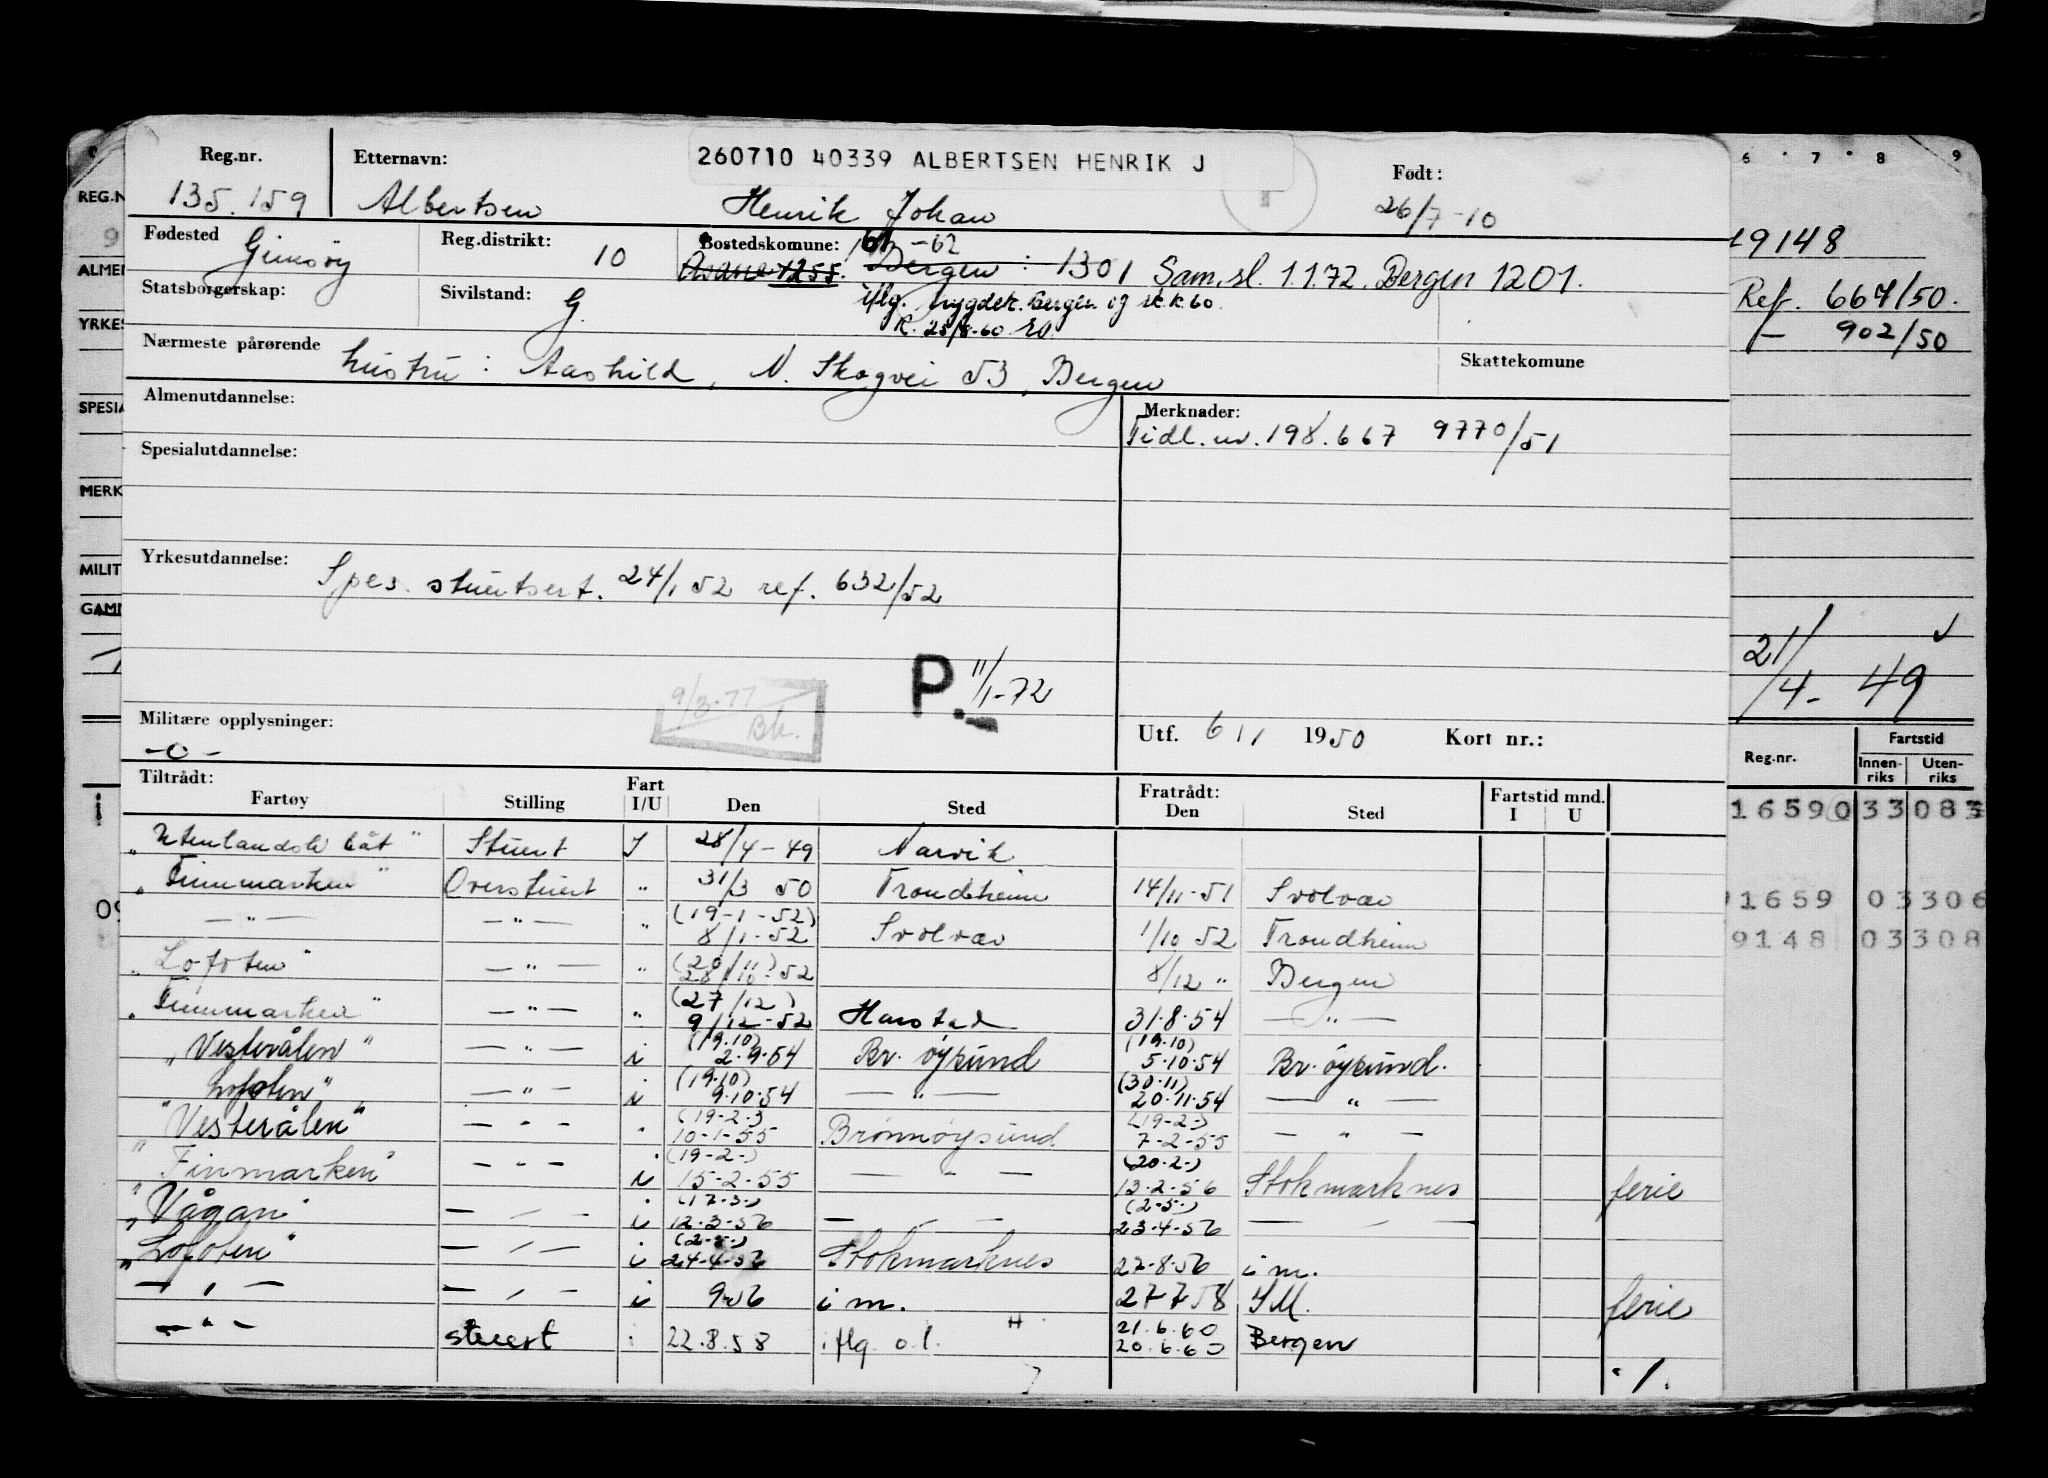 260710 40339 ALBERTSEN HENRIK J
Reg.nr. Etternavn: Født:
135.159 Albertsen Henrik Johan 26/7-10
Fødested Gimsøy Reg.distrikt: 10 Bostedskomune: -62
Åsane 1255. Bergen: 1301 Sam.sl. 1.1.72. Bergen 1201.
Statsborgerskap: Sivilstand: G. iflg. trygdek. Bergen og sk.k. 60.
K. 25/8-60
Nærmeste pårørende Skattekomune
hustru: Aashild, N. Skogvei 53, Bergen
Almenutdannelse: Merknader:
Tidl. nr. 198.667 9770/51
Spesialutdannelse:
Yrkesutdannelse: Spes. stuertsert. 24/1 52 ref. 632/52
P. 11/1-72
9/3-77
Bk.
Militære opplysninger: Utf. 6/1 1950 Kort nr.:
-0-
Tiltrådt: Fratrådt:
Fartøy Stilling Fart I/U Den Sted Den Sted Fartstid mnd. I U
"Utenlandsk båt" Stuert I 28/4-49 Narvik
"Finnmarken" Overstuert " 31/3 50 Trondheim 14/11-51 Svolvær
— " — — " — " (19-1-52) 8/1-52 Svolvær 1/10 52 Trondheim
"Lofoten" — " — " (20/11) 28/10-52 8/12 " Bergen
"Finnmarken" — " — " (27/12) 9/12-52 Harstad 31.8.54 — " —
"Vesterålen" — " — i (19.10) 2.9.54 Br. øysund (19.10) 5.10.54 Br. øysund.
"Lofoten" — " — i (19.10) 9.10.54 — " — (30.11) 20.11.54 — " —
"Vesterålen" — " — " (19-2-) 10-1-55 Brønnøysund (19-2-) 7-2-55 — " —
"Finmarken" — " — i (19-2-) 15-2-55 — — — (20.2.) 13.2.56 Stokmarknes ferie
"Vågan" — " — i (17.3.) 12.3.56 — " — (2.5.) 23.4.56 — " —
"Lofoten" — " — i 24.4.56 Stokmarknes 27.8.56 i m.
— " — — " — i 9-56 i m. 27 7 58 I M. ferie
— " — stuert i 22.8.58 iflg. o.l. 21.6.60 20.6.60 Bergen
./.
REG.N
ALMEN
YRKES
SPESIA
MERK
MILIT
GAM
6 7 8 9
19148
Ref. 667/50.
— 902/50
21/4-49
Reg.nr. Fartstid
Innen-riks Uten-riks
16590 33083
1659 03306
9148 03308